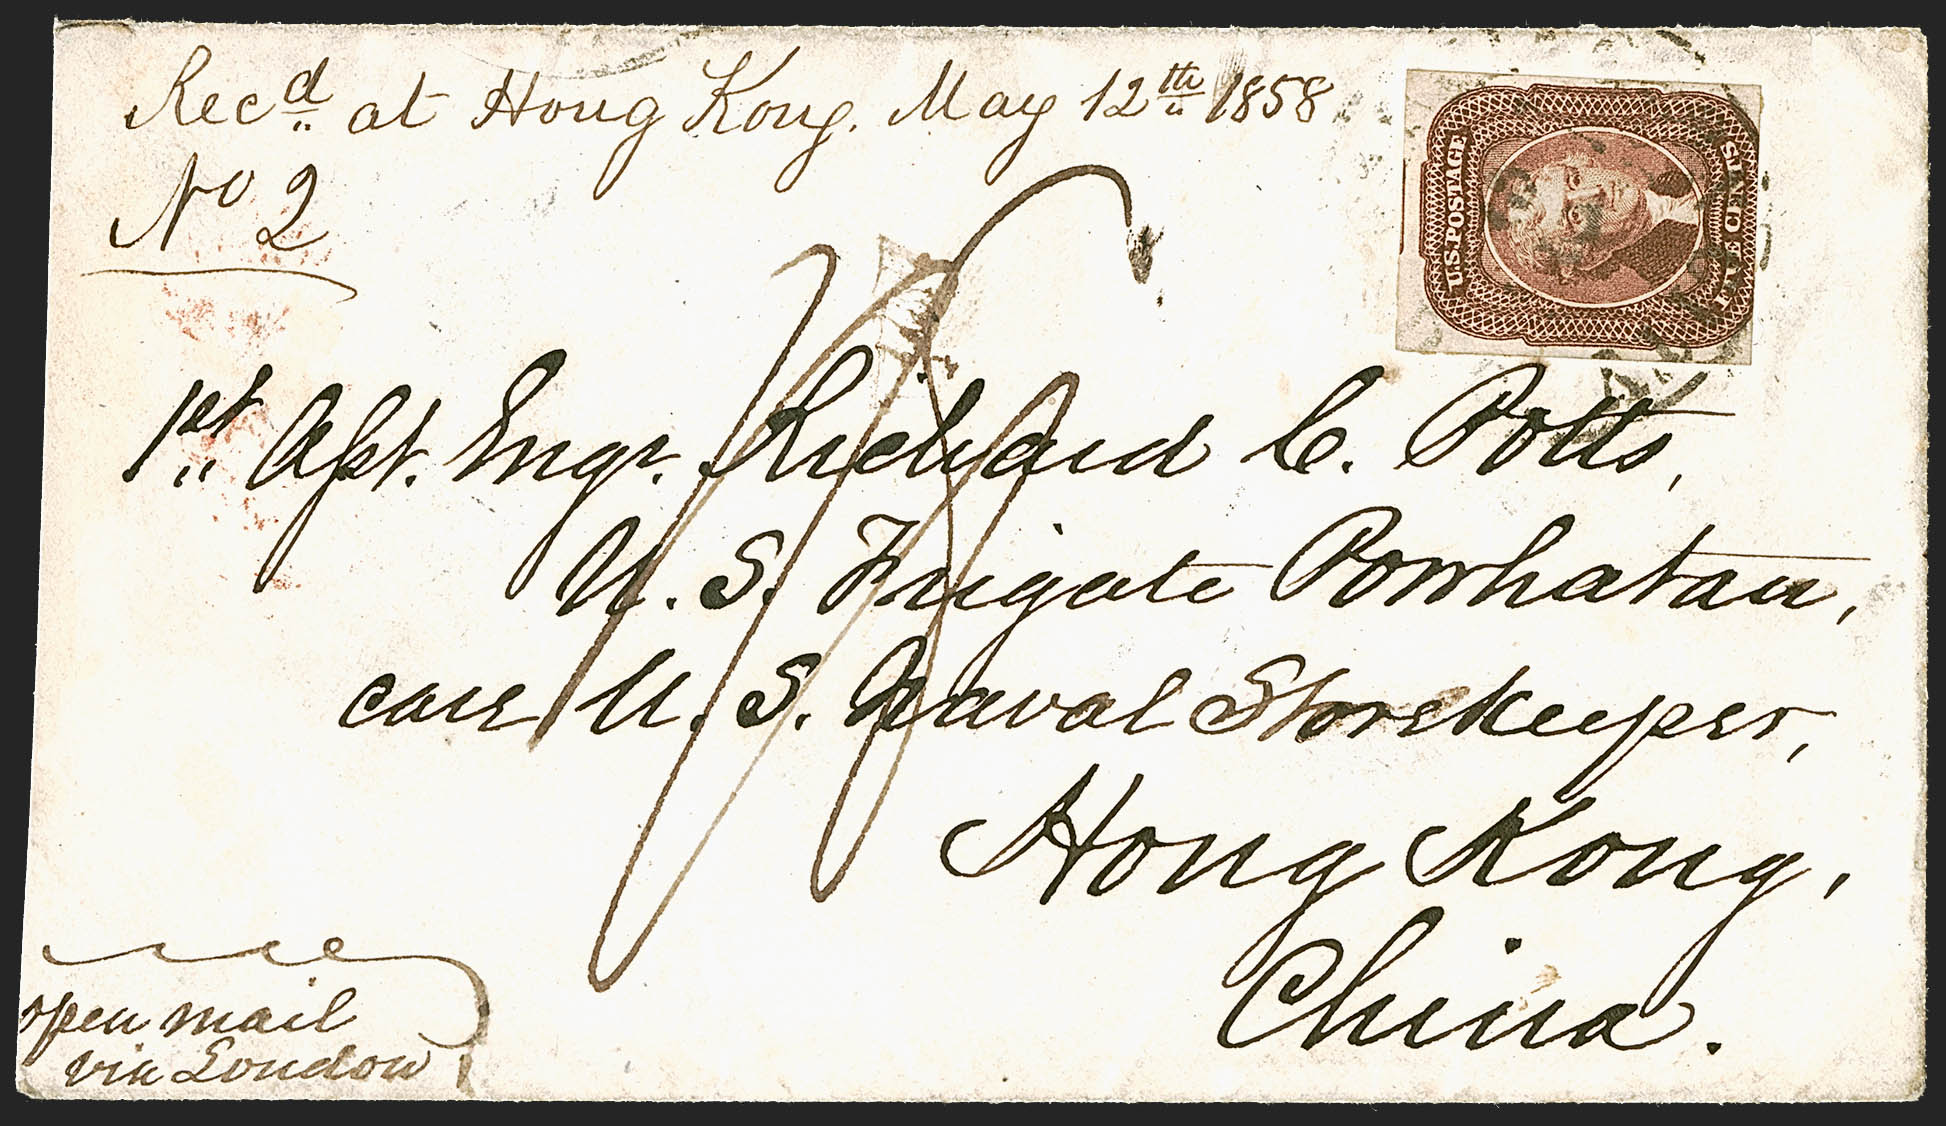 Recd at Hong Kong. May 12th 1858
No 2
U.S. POSTAGE
FIVE CENTS
1st Asst. Engr. Richard C. Potts,
U. S. Frigate Powhatan,
care U. S. Naval Storekeeper,
Hong Kong,
China.
open mail
via London